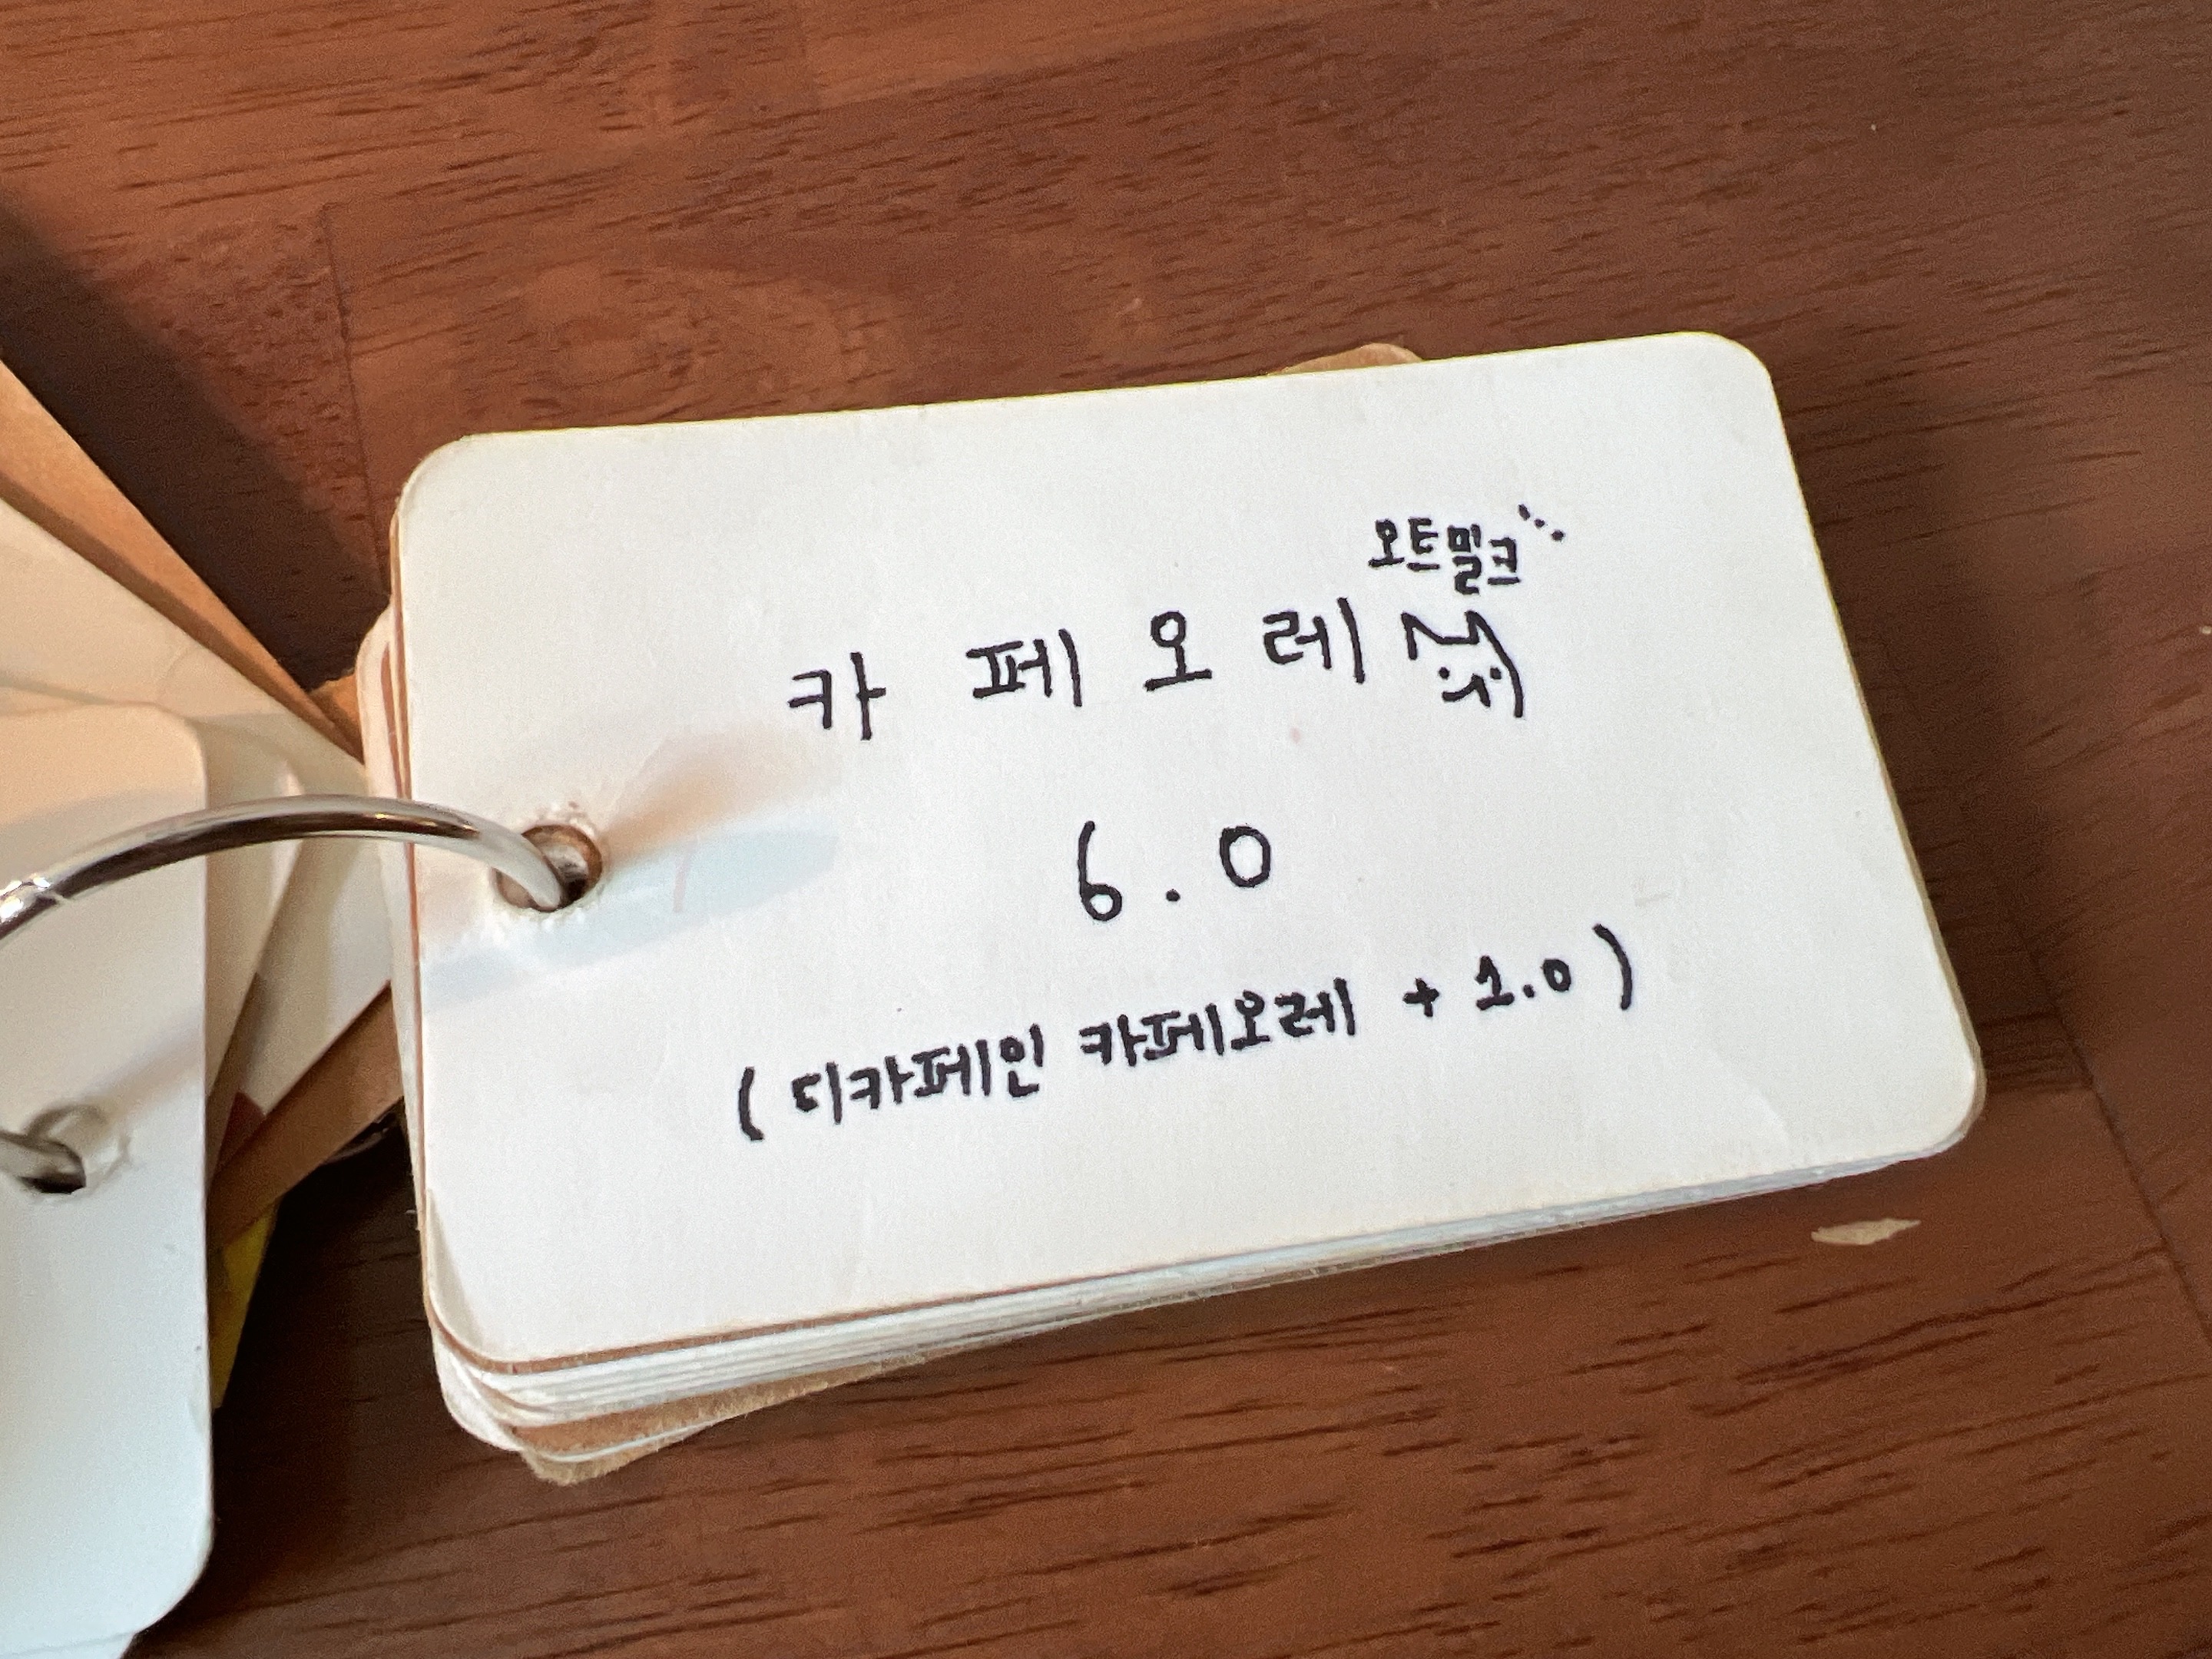 오트밀크
카페오레
6.0
(디카페인 카페오레 + 1.0)